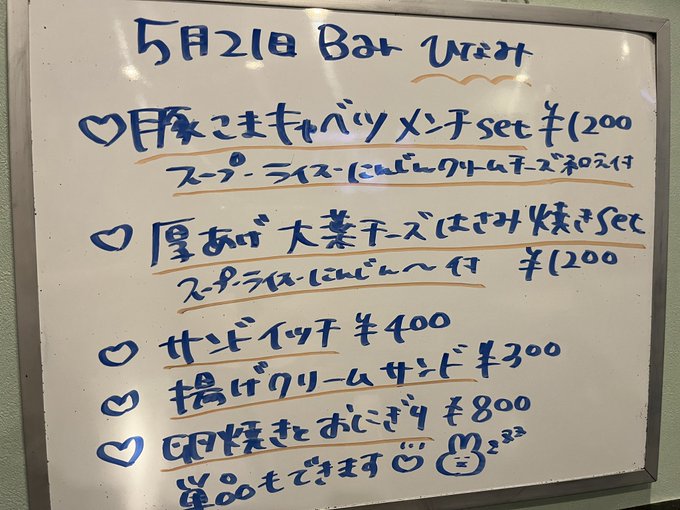 5月21日 Bar ひなみ
♡豚こまキャベツメンチset ¥1200
スープ・ライス・にんじんクリームチーズ和え付
♡厚あげ大葉チーズはさみ焼きset
スープ・ライス・にんじん〜付 ¥1200
♡サンドイッチ ¥400
♡揚げクリームサンド ¥300
♡卵焼きとおにぎり ¥800
単品もできます